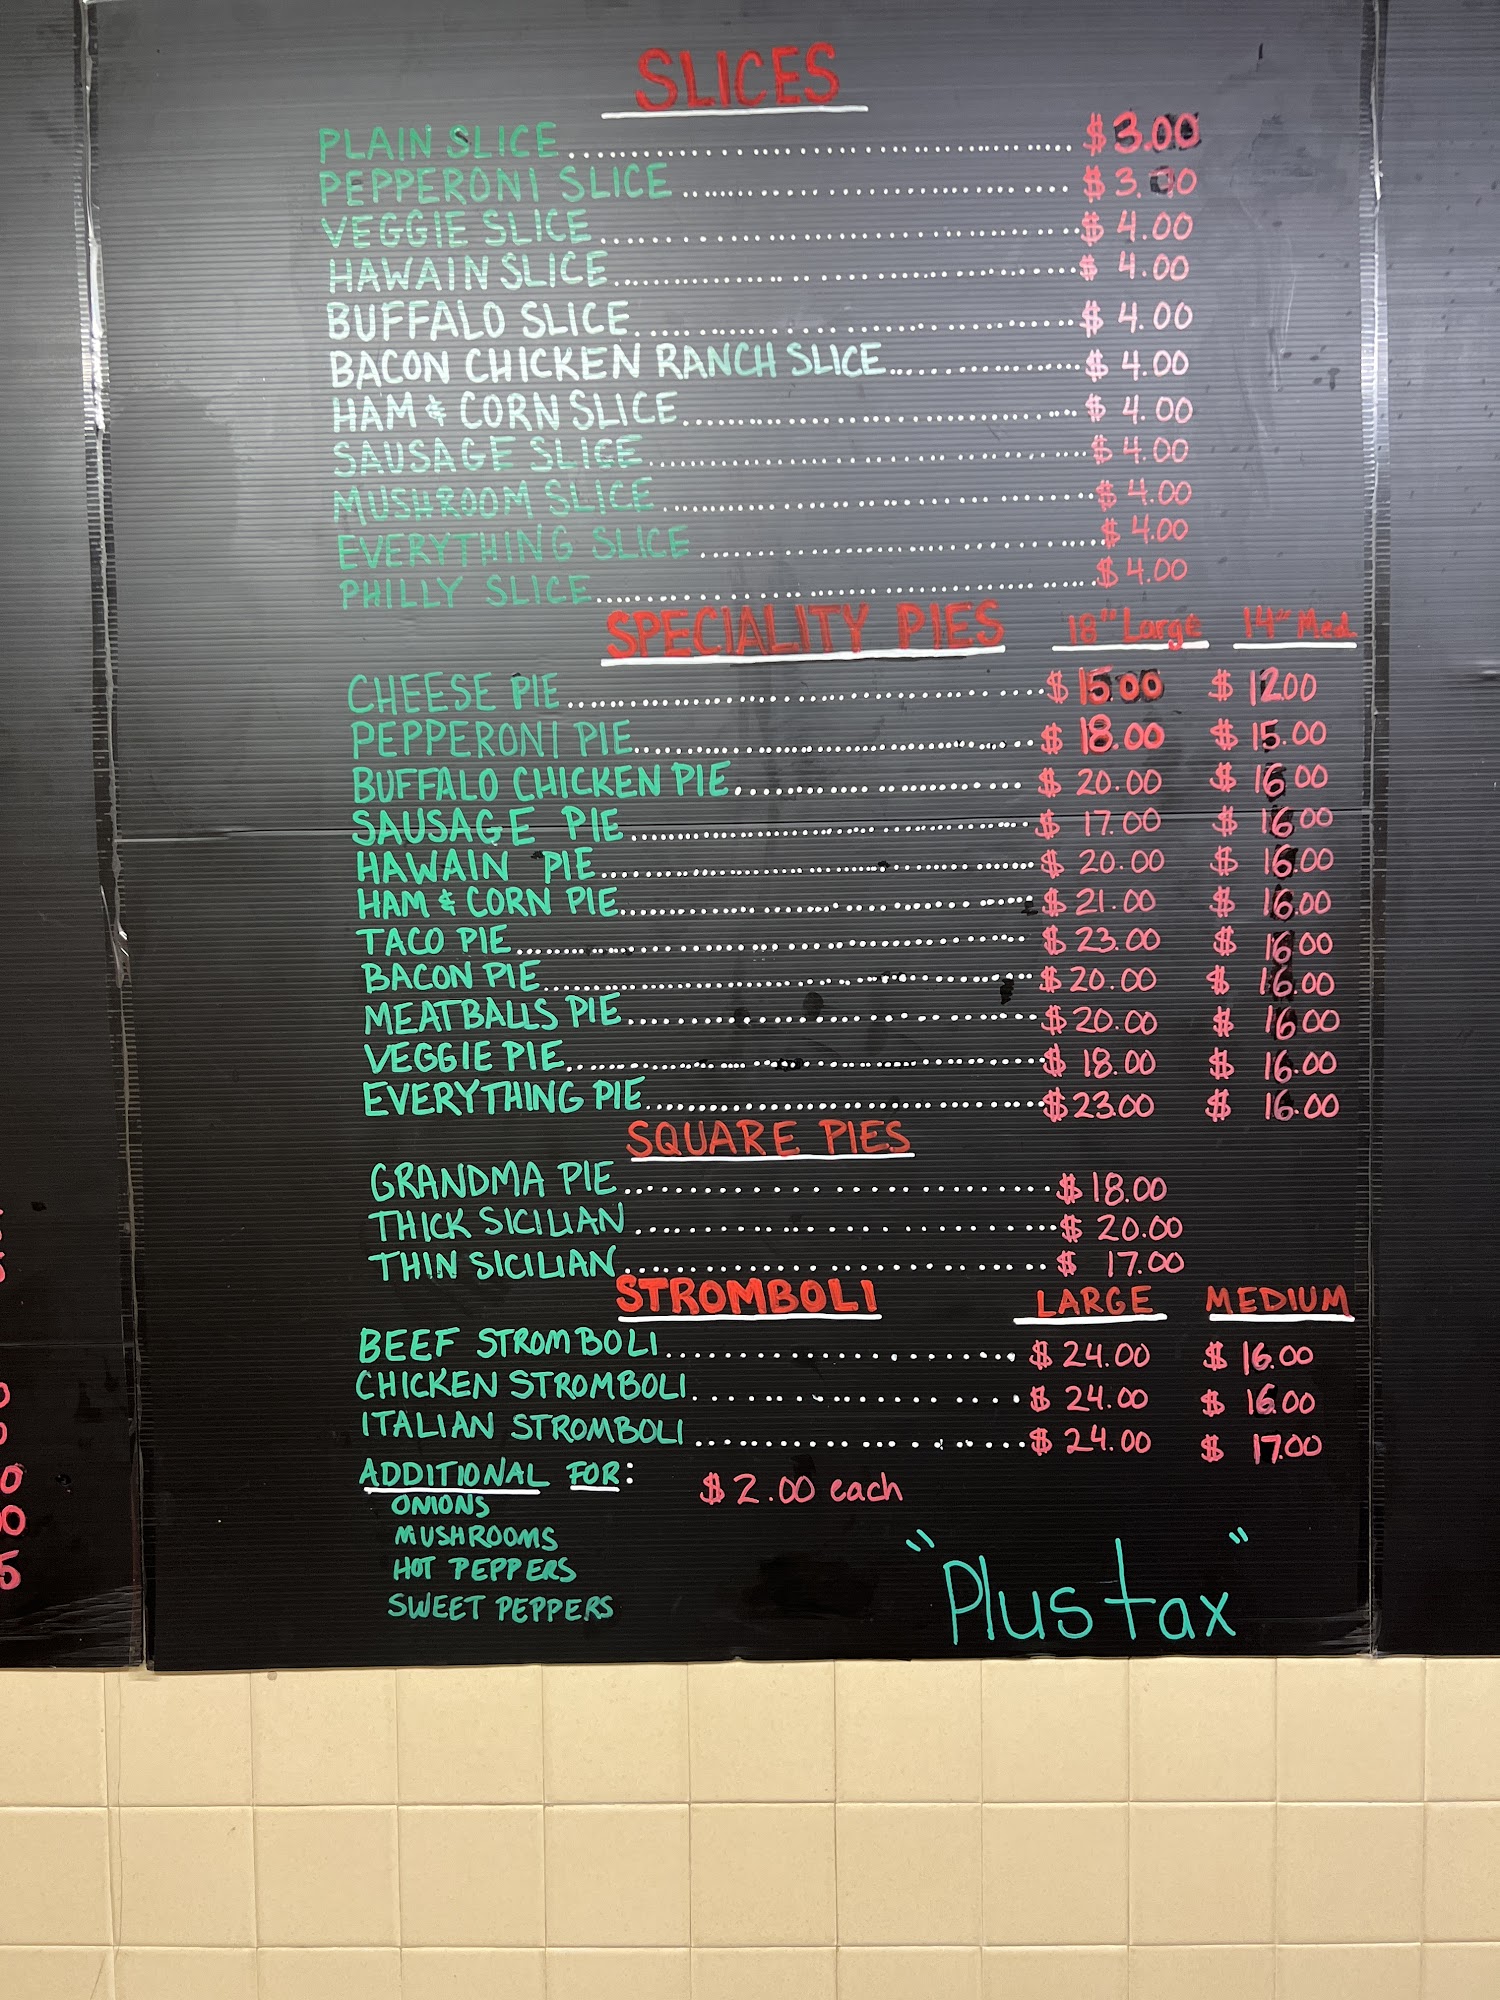 SLICES
PLAIN SLICE $3.00
PEPPERONI SLICE
VEGGIE SLICE $4.00
HAWAIN SLICE $4.00
BUFFALO SLICE $4.00
BACON CHICKEN RANCH SLICE $4.00
HAM & CORN SLICE $4.00
SAUSAGE SLICE $4.00
MUSHROOM SLICE $4.00
EVERYTHING SLICE $4.00
PHILLY SLICE $4.00
SPECIALITY PIES 18" Large 14" Med
CHEESE PIE $15.00 $12.00
PEPPERONI PIE $18.00 $15.00
BUFFALO CHICKEN PIE $20.00 $16.00
SAUSAGE PIE $17.00 $16.00
HAWAIN PIE $20.00 $16.00
HAM & CORN PIE $21.00 $16.00
TACO PIE $23.00 $16.00
BACON PIE $20.00 $16.00
MEATBALLS PIE $20.00 $16.00
VEGGIE PIE $18.00 $16.00
EVERYTHING PIE $23.00 $16.00
SQUARE PIES
GRANDMA PIE $18.00
THICK SICILIAN $20.00
THIN SICILIAN $17.00
STROMBOLI LARGE MEDIUM
BEEF STROMBOLI $24.00 $16.00
CHICKEN STROMBOLI $24.00 $16.00
ITALIAN STROMBOLI $24.00 $17.00
ADDITIONAL FOR: $2.00 each
ONIONS
MUSHROOMS
HOT PEPPERS
SWEET PEPPERS
"Plus tax"